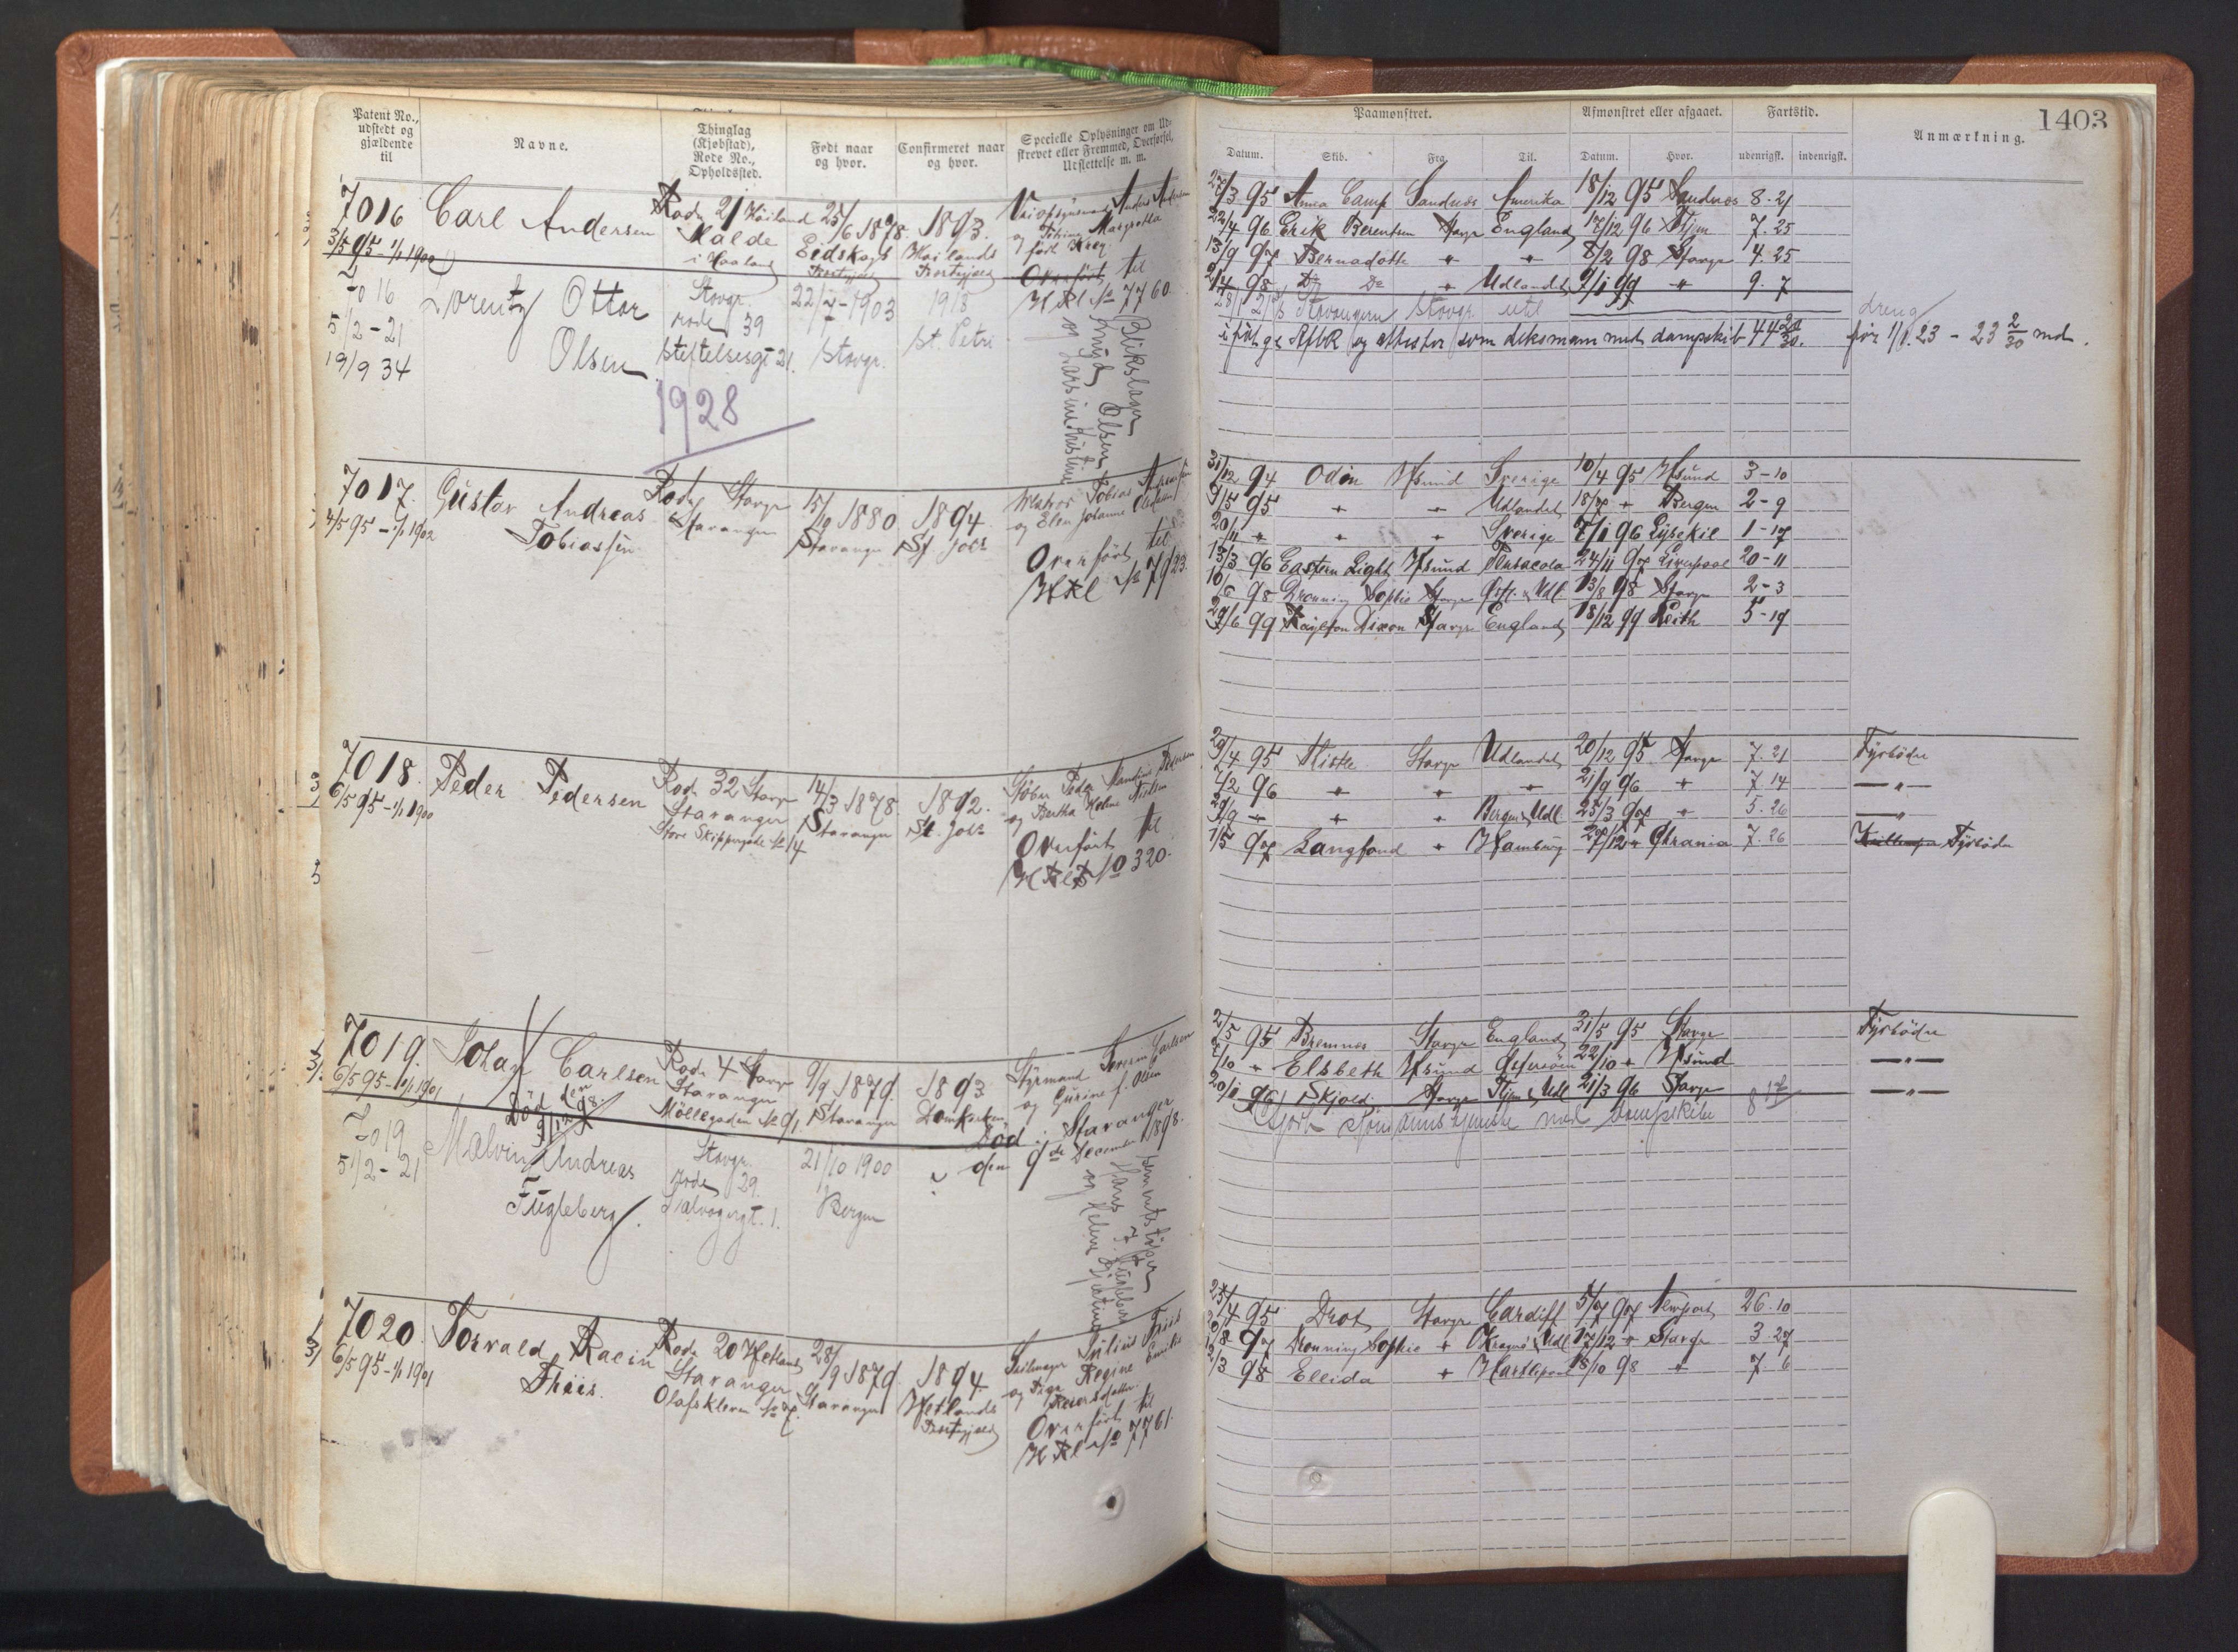 1403
Patent No., udstedt og gjældende til
Navne.
Thinglag (Kjøbstad), Rode No., Opholdssted.
Født naar og hvor.
Confirmeret naar og hvor.
Specielle Oplysninger om Udskrevet eller Fremmed, Overførsel, Udslettelse m. m.
Paamønstret.
Afmønstret eller afgaaet.
Fartstid.
Anmærkning.
Datum. Skib. Fra. Til. Datum. Hvor. udenrigsk. indenrigsk.
7016 Carl Andersen
3/5 95 - 1/1 1900
Rode 21 Høiland
Malde
i Haaland
25/6 1878.
Eidskogs
Prestegjeld
1893.
Høilands
Prestegjeld
Anders Andersen
Overført til
HRl No 7760
27/3 95 Anna Camp Sandnes Amerika 18/12 95 Sandnes 8-21
22/4 96 Erik Berentsen Stavgr England 17/12 96 Tjen 7.25
13/9 97 Bernadotte " " 8/2 98 Stavgr 4.25
2/4 98 Do Do " Udlandet 9/1 99 " 9.7
7016
5/2-21
19/9 34
Lorentz Ottar
Olsen
Stavgr.
rode 39
Stiftelsesgt 21.
1928
22/7-1903
Stavgr.
1918
St. Petri
Blikslager
Olsen
og
28/1 21 Stavangeren Stavgr. utl
som deksmann med dampskib 44 20/30.
dreng
før 1/1.23 - 23 2/30 md.
7017. Gustav Andreas
4/5 95 - 1/1 1902
Tobiassen
Rode Stavgr
Stavanger
15/10 1880
Stavanger
1894.
St. Johs
Matros Tobias
og Elen Johanne
Overført til
HRl No 7923.
31/12 94 Odin Hsund Sverige 10/4 95 Hsund 3-10
9/5 95 " " Udlandet 18/7 " Bergen 2-9
20/11 " " " Sverige 7/1 96 Lysekil 1-17
13/3 96 Eastern Light Hsund Pensacola 24/11 97 Liverpool 20-11
10/6 98 Dronning Sophie Stavgr Østl. & Udl. 13/8 98 Stavgr 2-3
29/6 99 Raylton Dixon Stavgr England 18/12 99 Leith 5-19
7018. Peder Pedersen
6/5 95 - 1/1 1900
Rode 32 Stavgr
Stavanger
Store Skippergade No 14
14/3 1878.
Stavanger
1892.
St. Johs
Fyrbøder Peder
og Bertha Helene Nielsen
Overført til
HRl B 10320.
29/4 95 Stavgr Udlandet 20/12 95 Stavgr 7.21 Fyrbøder
7/2 96 " " " 21/9 96 " 7 14 — " —
29/9 " " " Bergen & Udl. 25/3 97 " 5.26 — " —
1/5 97 Langfond " Hamburg 27/12 " Chrania 7.26 Fyrbøder
7019. Johan Carlsen
6/5 95 - 1/1 1901
Død den 9/12 98.
Rode 4 Stavgr
Stavanger
Møllegaden No 91.
9/9 1879.
Stavanger
1893
Domkirken
Styrmand Severin Carlsen
og Gurine f. Olsen
Død i Stavanger
den 9de December 1898.
2/5 95 Bremnes Stavgr England 31/5 95 Stavgr Fyrbøder
2/10 " Elsbeth Hsund 22/10 " Hsund — " —
20/1 96 Skjold Stavgr Tjen & Udl 21/3 96 Stavgr — " —
7019
5/2-21
Malvin Andreas
Fugleberg.
Stavgr.
rode 29.
21/10 1900
Bergen
Gjort sjømannstjeneste med dampskibe
7020. Torvald Racin
6/5 95 - 1/1 1901
Thiis.
Rode 20 Hetland
Stavanger
Olafskleven No 7.
28/9 1879.
Stavanger
1894.
Hetlands
Prestegjeld
Seilmager Julius Thiis
og Regine Emilie
Overført til
HRl No 7761.
25/4 95 Drot Stavgr Cardiff 5/7 97 Newport 26.10
20/8 97 Dronning Sophie " & Udl 17/12 " Stavgr 3.27
12/3 98 Ellida " Hartlepool 18/10 98 " 7.6